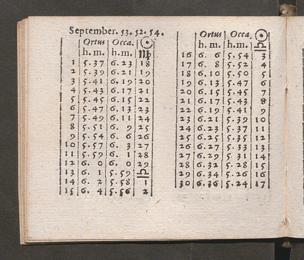 September. 53. 52. 54.
Ortus Occa. ☉
h. m. h. m. ♍
1 5. 37 6. 23 18
2 5. 39 6. 21 19
3 5. 41 6. 19 20
4 5. 43 6. 17 21
5 5. 45 6. 15 22
6 5. 47 6. 13 23
7 5. 49 6. 11 24
8 5. 51 6. 9
9 5. 54 6. 6 26
10 5. 57 6. 3 27
11 5. 59 6. 1 28
12 6. 0 6. 0 29
13 6. 1 5. 59 ♎
14 6. 2 5. 58 1
15 6. 4 5. 56 2
Ortus Occa. ☉
h. m. h. m. ♎
16 6. 6 5. 54 3
17 6. 8 5. 52 4
18 6. 10 5. 50 5
19 6. 13 5. 47 6
20 6. 15 5. 45 7
21 6. 17 5. 43 8
22 6. 19 5. 41 9
23 6. 21 5. 39 10
24 6. 23 5. 37 11
25 6. 25 5. 35 12
26 6. 27 5. 33 13
27 6. 29 5. 31 14
28 6. 32 5. 28 15
29 6. 34 5. 26 16
30 6. 36 5. 24 17